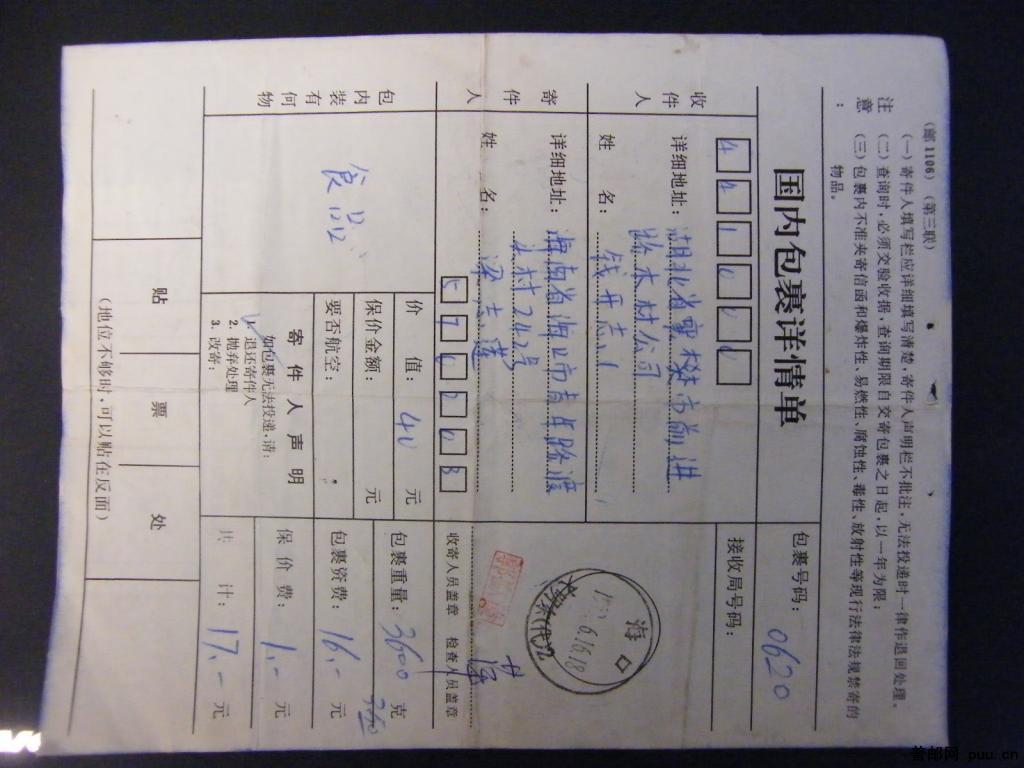 (邮1106)(第三联)
注意:
(一)寄件人填写栏应详细填写清楚,寄件人声明栏不批注,无法投递时一律作退回处理。
(二)查询时,必须交验收据,查询期限自交寄包裹之日起,以一年为限;
(三)包裹内不准夹寄信函和爆炸性、易燃性、腐蚀性、毒性、放射性等现行法律法规禁寄的
物品。
国内包裹详情单
包裹号码:0620
接收局号码:
441000
收件人
详细地址:湖北省襄樊市前进
路木材公司
姓 名:
寄件人
详细地址:海南省海口市青年路渡
村242号
姓 名:梁
570208
海口
收寄人员盖章 检查人员盖章
包内装有何物
食品
1212
价 值:40 元
保价金额: 元
要否航空:
寄件人声明
如包裹无法投递,请:
1. 退还寄件人
2. 抛弃处理
3. 改寄:
包裹重量:3600 克
包裹资费:16.- 元
保 价 费:1.- 元
共 计:17.- 元
贴 票 处
(地位不够时,可以贴在反面)
普邮网 puu.cn